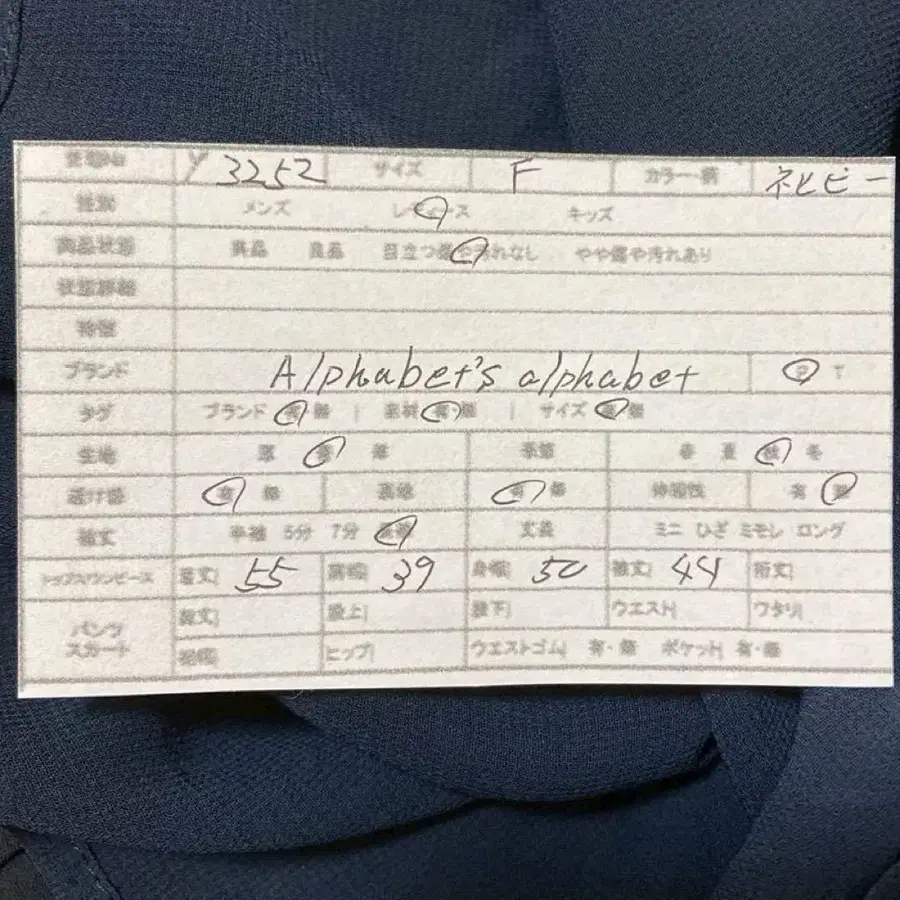 Y 3252 サイズ F カラー・柄 ネビビー
性別 メンズ レディース キッズ
商品状態 美品 良品 目立つ傷や汚れなし やや傷や汚れあり
状態詳細
特徴
ブランド Alphabet's alphabet P T
タグ ブランド 有・無 | 素材 有・無 | サイズ 有・無
生地 厚 普 薄 季節 春 夏 秋 冬
透け感 有 無 裏地 有 無 伸縮性 有 無
袖丈 半袖 5分 7分 長袖 丈長 ミニ ひざ ミモレ ロング
トップス/ワンピース 着丈| 55 肩幅| 39 身幅| 50 袖丈| 44 裄丈|
パンツ スカート 総丈| 股上| 股下| ウエスト| ワタリ|
裾幅| ヒップ| ウエストゴム| 有・無 ポケット| 有・無